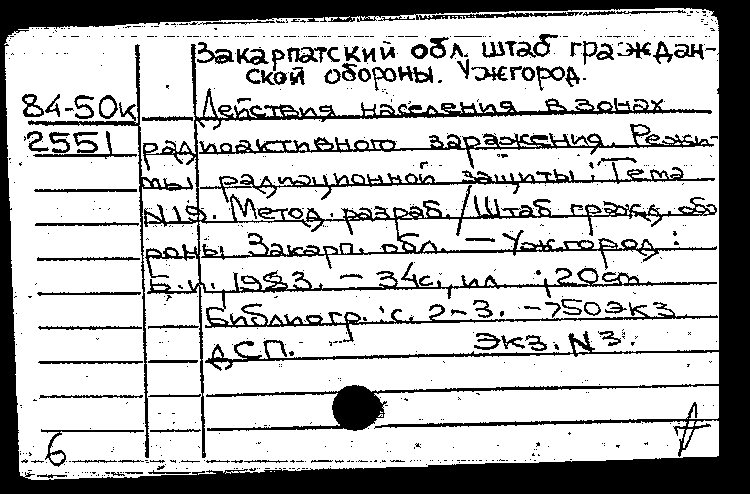 Закарпатский обл. штаб граждан-
ской обороны. Ужгород.
84-50к Действия населения в зонах
2551 радиоактивного заражения. Режи-
мы радиационной защиты: Тема
N19. Метод. разраб. / Штаб гражд. обо
роны Закарп. обл. — Ужгород:
Б.и., 1983. — 34с., ил.; 20см.
Библиогр.: с. 2-3. — 750экз
ДСП. Экз. N3.
6